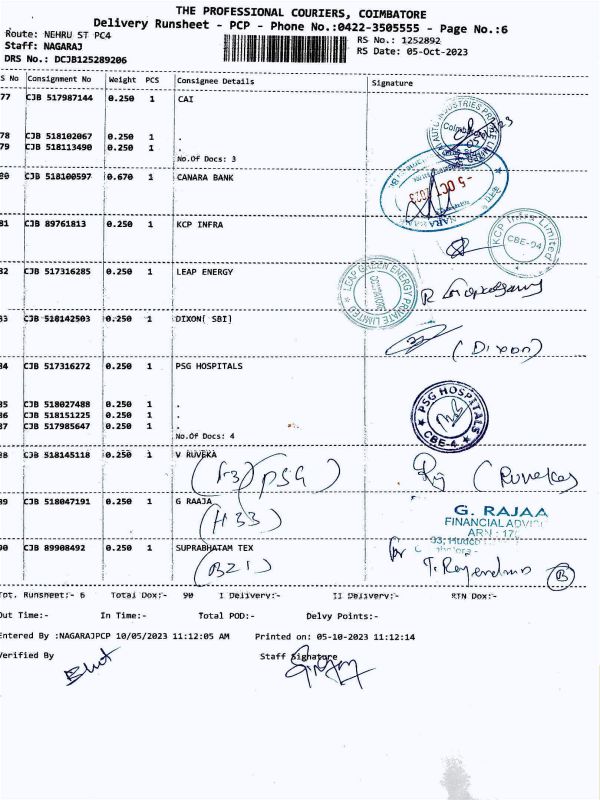 THE PROFESSIONAL COURIERS, COIMBATORE
Delivery Runsheet - PCP - Phone No.:0422-3505555 - Page No.:6
Route: NEHRU ST PC4
RS No.: 1252892
Staff: NAGARAJ
RS Date: 05-Oct-2023
DRS No.: DCJB125289206
S No Consignment No Weight PCS Consignee Details Signature
77 CJB 517987144 0.250 1 CAI
78 CJB 518102067 0.250 1 .
79 CJB 518113490 0.250 1 .
No.Of Docs: 3
80 CJB 518100597 0.670 1 CANARA BANK
-5 OCT 2023
81 CJB 89761813 0.250 1 KCP INFRA
KCP Infra Limited
CBE-04
82 CJB 517316285 0.250 1 LEAP ENERGY
LEAP GREEN ENERGY PRIVATE LIMITED
COIMBATORE
83 CJB 518142503 0.250 1 DIXON( SBI)
(Dixon)
84 CJB 517316272 0.250 1 PSG HOSPITALS
PSG HOSPITALS
CBE-4
85 CJB 518027488 0.250 1 .
86 CJB 518151225 0.250 1 .
87 CJB 517985647 0.250 1 .
No.Of Docs: 4
88 CJB 518145118 0.250 1 V RUVEKA
89 CJB 518047191 0.250 1 G RAAJA
(H33)
G. RAJAA
FINANCIAL ADVI
ARN : 17
93, Hudco
90 CJB 89908492 0.250 1 SUPRABHATAM TEX
(BZ1)
for
T. Rajendran
B
Tot. Runsheet:- 6 Total Dox:- 90 I Delivery:- II Delivery:- RTN Dox:-
Out Time:- In Time:- Total POD:- Delvy Points:-
Entered By :NAGARAJPCP 10/05/2023 11:12:05 AM Printed on: 05-10-2023 11:12:14
Verified By Staff Signature